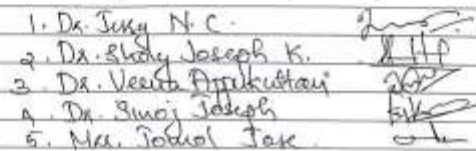 1. Dr. Jusy N. C.
2. Dr. Shaly Joseph K.
3. Dr. Veena Appukuttan
4. Dr. Sinoj Joseph
5. Mrs. Jose